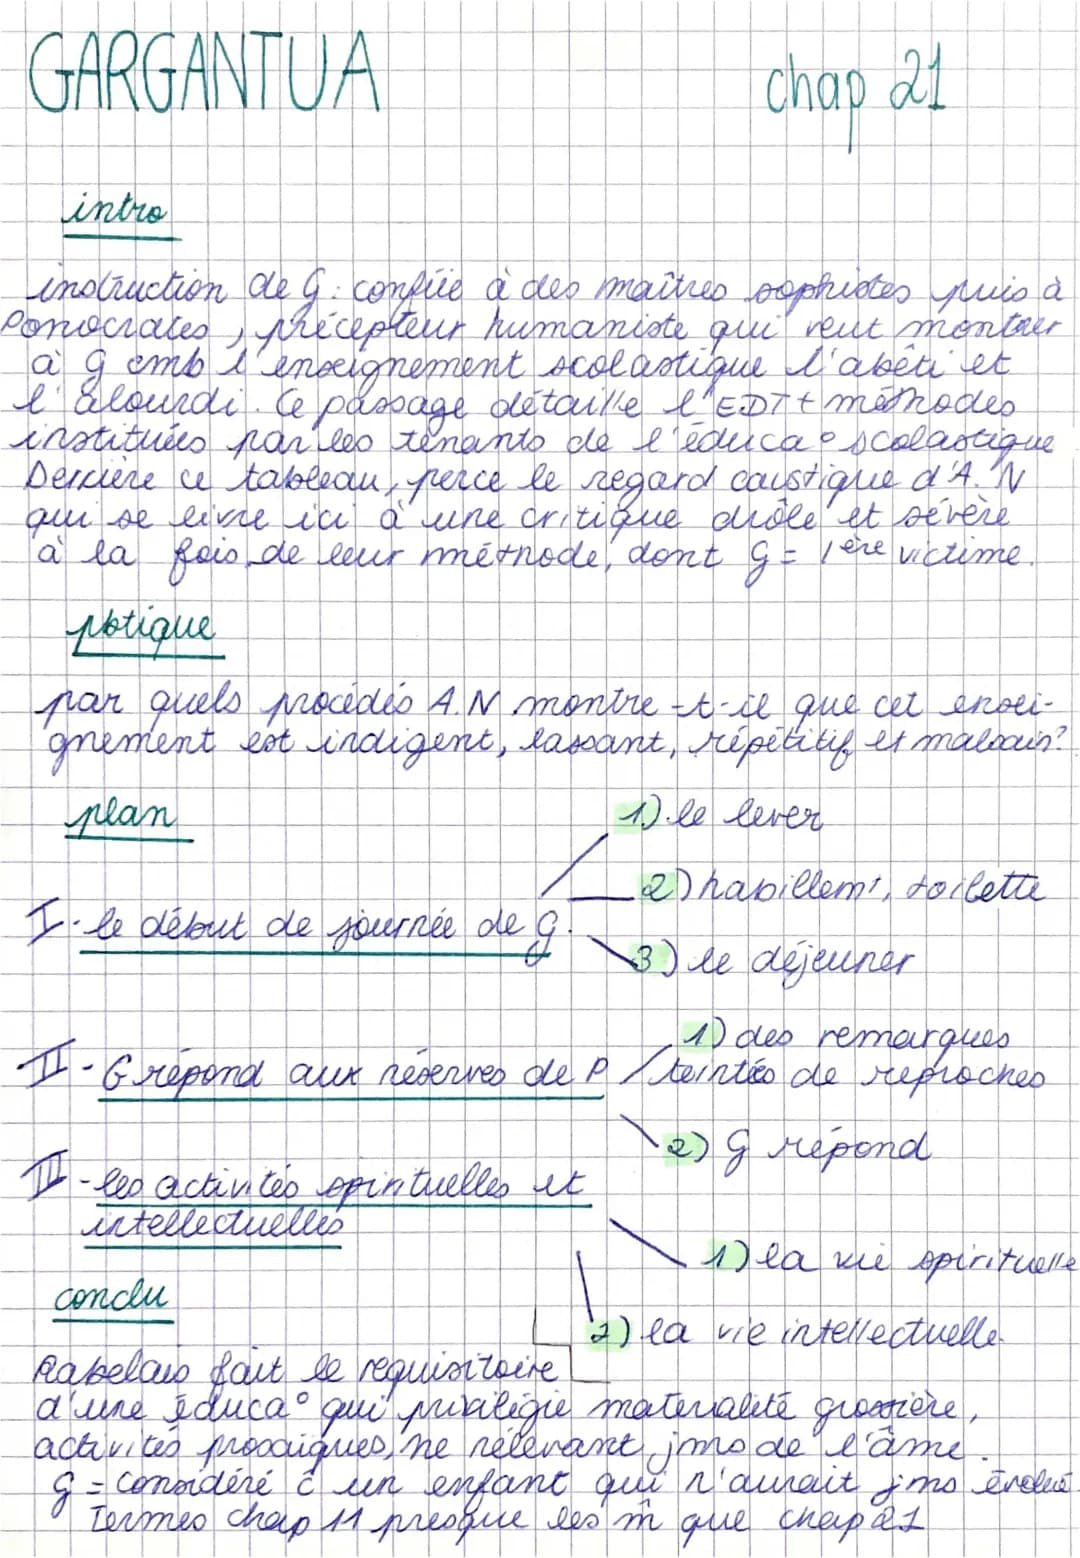 GARGANTUA chap 21
intro
instruction de G : confiée à des maîtres sophistes puis à
Ponocrates, précepteur humaniste qui veut montrer
à G cmb l'enseignement scolastique l'abêti et
l'alourdi. Ce passage détaille l'EDT + méthodes
instituées par les tenants de l'éduca° scolastique
Derrière ce tableau, perce le regard caustique d'A.N
qui se livre ici à une critique drôle et sévère
à la fois de leur méthode, dont G = 1ère victime.
pbtique
par quels procédés A.N montre-t-il que cet ensei-
gnement est indigent, lassant, répétitif et malsain?
plan
1) le lever
2) habillemt, toilette
I - le début de journée de G.
3) le déjeuner
1) des remarques
II - G répond aux réserves de P teintées de reproches
2) G répond
III - les activités spirituelles et
intellectuelles
1) la vie spirituelle
conclu
2) la vie intellectuelle
Rabelais fait le requisitoire
d'une éduca° qui privilégie matérialité grossière,
activités prosaïques, ne relevant jms de l'âme.
G = considéré c un enfant qui n'aurait jms évolué
Termes chap 11 presque les m̂ que chap 21